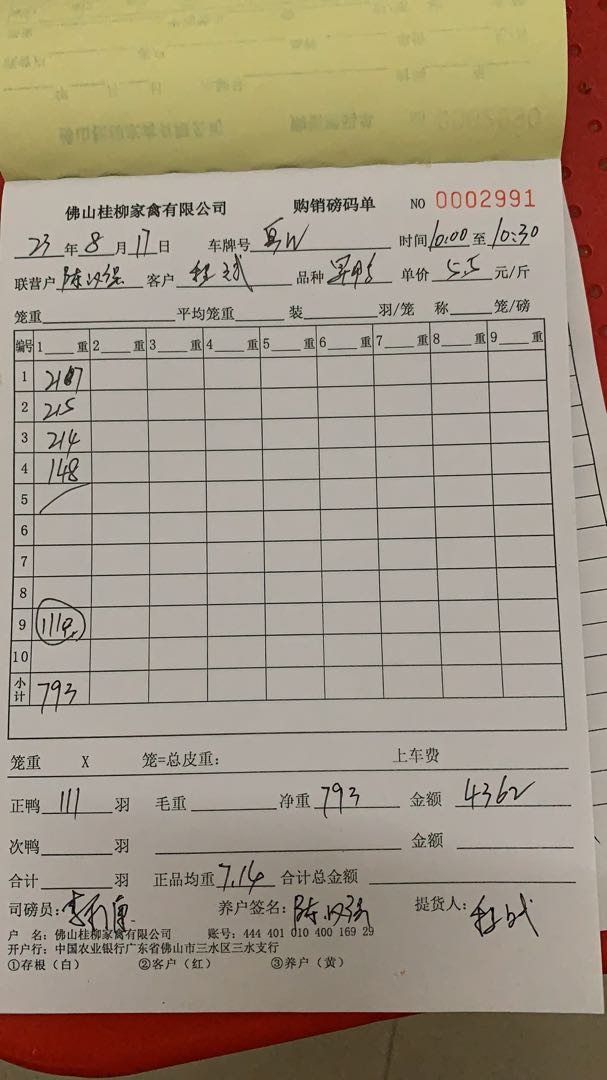 佛山桂柳家禽有限公司 购销磅码单 NO 0002991
23 年 8 月 17 日 车牌号 时间 10:00 至 10:30
联营户 客户 品种 单价 5.5 元/斤
笼重 平均笼重 装 羽/笼 称 笼/磅
编号 1 重 2 重 3 重 4 重 5 重 6 重 7 重 8 重 9 重
1
2 215
3 214
4 148
5
6
7
8
9
10
小计 793
笼重 X 笼=总皮重: 上车费
正鸭 111 羽 毛重 净重 793 金额 4362
次鸭 羽 金额
合计 羽 正品均重 7.14 合计总金额
司磅员: 养户签名: 提货人:
户 名: 佛山桂柳家禽有限公司 账号: 444 401 010 400 169 29
开户行: 中国农业银行广东省佛山市三水区三水支行
①存根（白） ②客户（红） ③养户（黄）